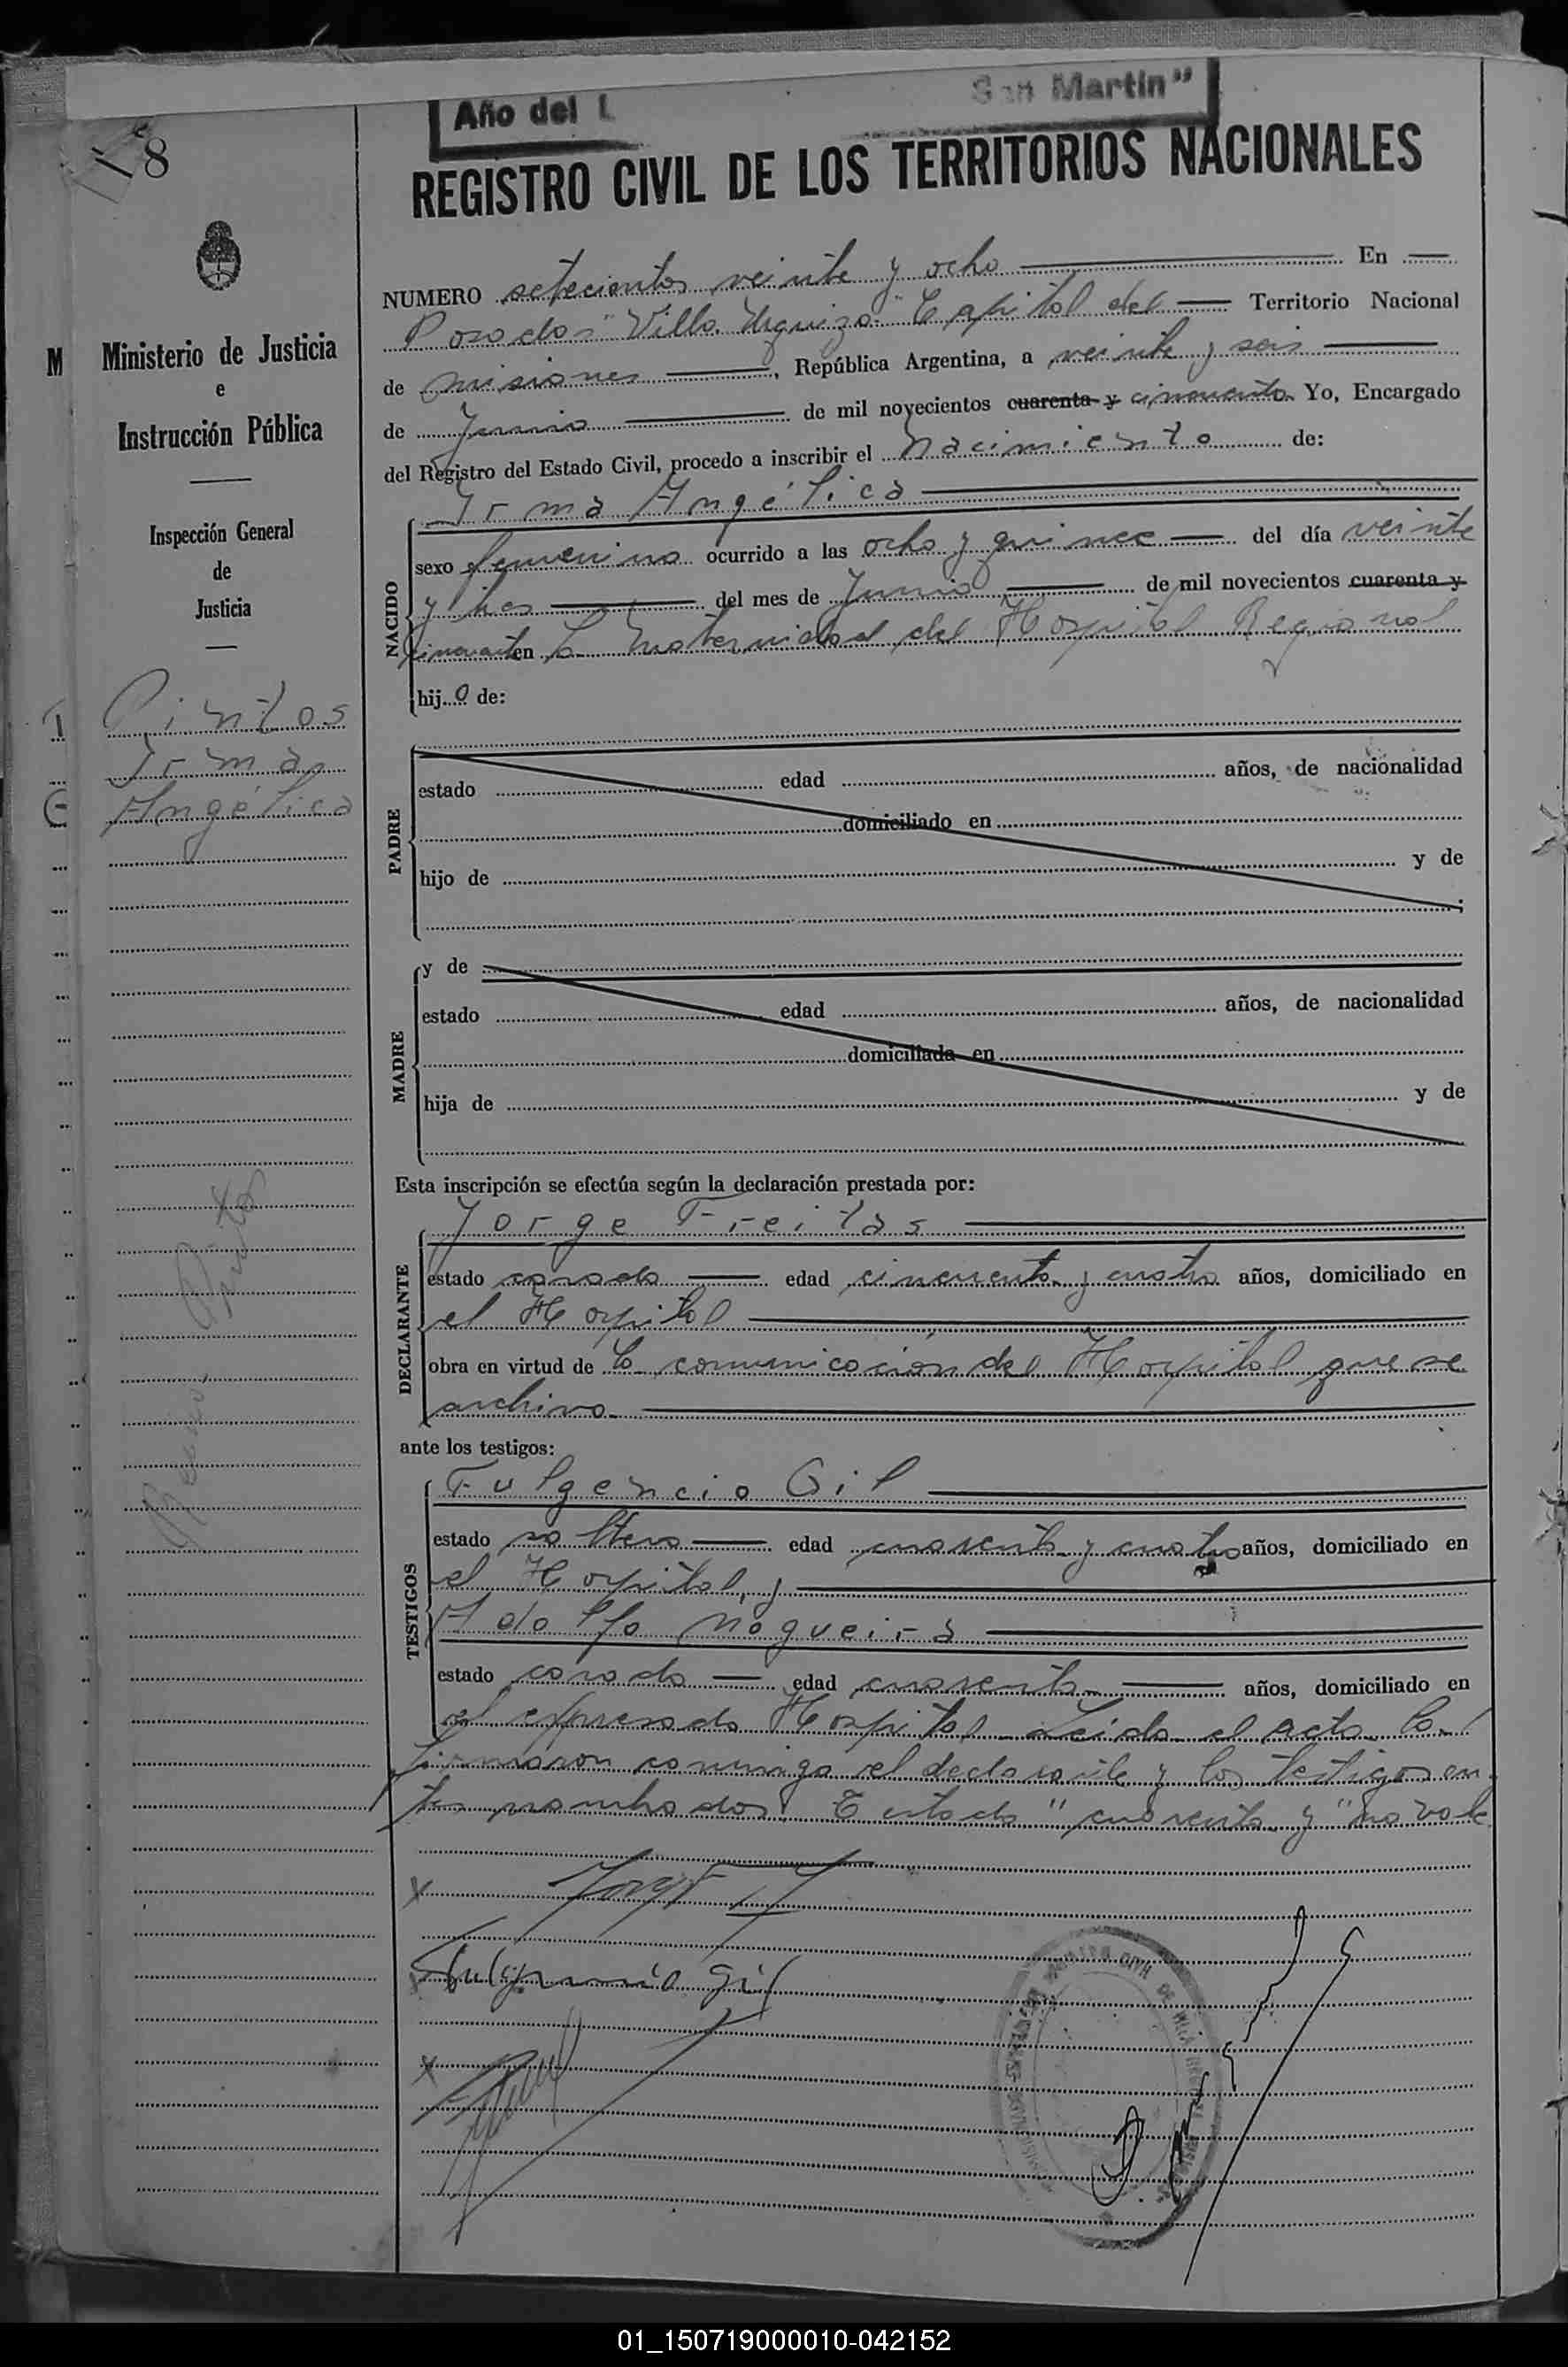 Año del L San Martín"
REGISTRO CIVIL DE LOS TERRITORIOS NACIONALES
8
M
Ministerio de Justicia
e
Instrucción Pública
Inspección General
de
Justicia
Pintos
Irma
Angélica
NUMERO setecientos veinte y ocho En
Posadas "Villa Urquiza" Capital del Territorio Nacional
de Misiones, República Argentina, a veinte y seis
de Junio de mil novecientos cuarenta y cincuenta Yo, Encargado
del Registro del Estado Civil, procedo a inscribir el nacimiento de:
NACIDO
Irma Angélica
sexo femenino ocurrido a las ocho y quince del día veinte
y tres del mes de Junio de mil novecientos cuarenta y
cincuenta en la Maternidad del Hospital Regional
hij a de:
PADRE
estado edad años, de nacionalidad
domiciliado en
hijo de y de
MADRE
y de
estado edad años, de nacionalidad
domiciliada en
hija de y de
Esta inscripción se efectúa según la declaración prestada por:
DECLARANTE
Jorge Freitas
estado casado edad cincuenta y cuatro años, domiciliado en
el Hospital
obra en virtud de la comunicación del Hospital que se
archiva.
ante los testigos:
TESTIGOS
Fulgencio Gil
estado soltero edad cuarenta y cuatro años, domiciliado en
el Hospital, y
Adolfo Nogueira
estado casado edad cuarenta años, domiciliado en
el expresado Hospital. Leída el acta la
firmaron conmigo el declarante y los testigos an-
tes nombrados. Testado "cuarenta y" no vale
Fulgencio Gil
01_150719000010-042152